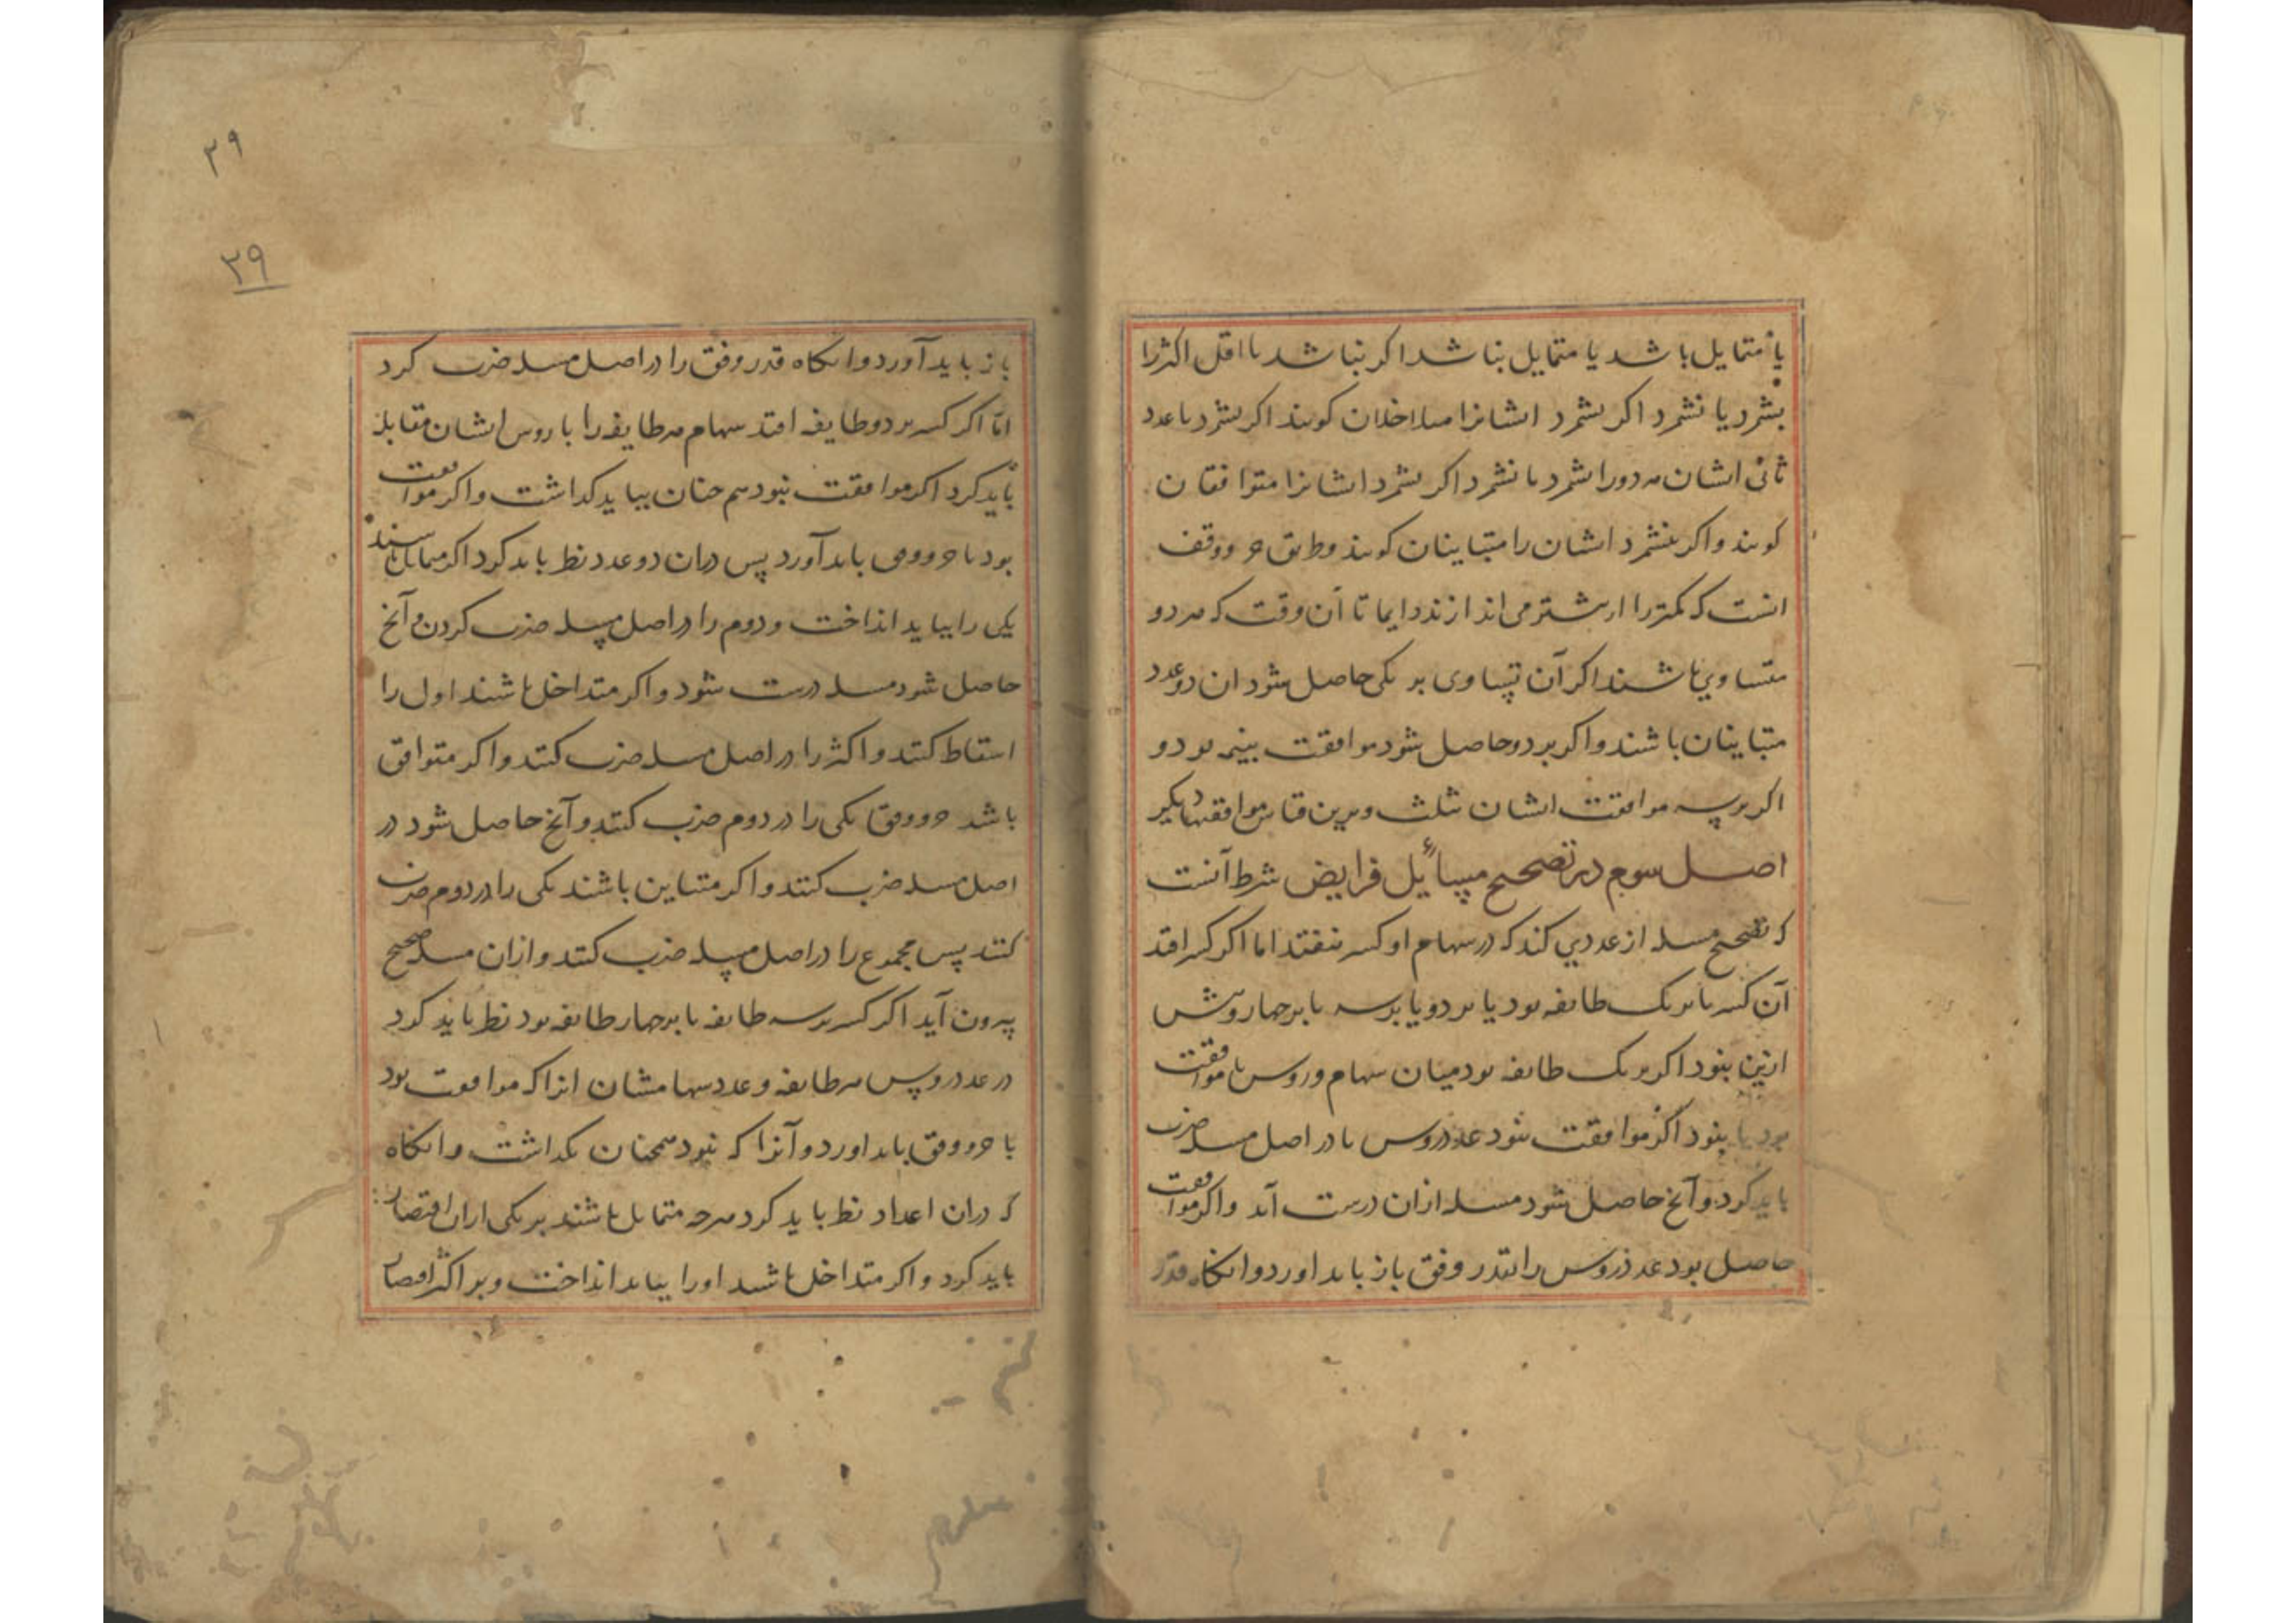 یا متمایل باشد یا متمایل نباشد اکر نباشد یا اقل اکثر را
بشمرد یا نشمرد اکر بشمرد ایشانرا متداخلان کویند اکر نشمرد یا عدد
ثانی ایشان هر دو را بشمرد یا نشمرد اکر بشمرد ایشانرا متوافقان
کویند و اکر نشمرد ایشان را متباینان کویند و طریق جزو وفق
انست که کمتر را از بیشتر می اندازند دایما تا آن وقت که هر دو
متساوی باشند اکر آن تساوی بر یکی حاصل شود ان دو عدد
متباینان باشند و اکر بر دو حاصل شود موافقت بنیمه بود و
اکر بر سه موافقت ایشان ثلث و برین قیاس موافقتهاء دیکر
اصل سوم در تصحیح مسائیل فرایض شرط آنست
که تصحیح مسله از عددی کند که در سهام او کسر نیفتد اما اکر کسر افتد
آن کسر یا بر یک طایفه بود یا بر دو یا بر سه یا بر چهار و بیش
ازین نبود اکر بر یک طایفه بود میان سهام و روس یا موافقت
بود یا نبود اکر موافقت نبود عدد روس را در اصل مسله ضرب
باید کرد و آنچ حاصل شود مسله ازان درست آید و اکر موافقت
حاصل بود عدد روس را بقدر وفق باز باید اورد و انکاه قدر
۳۹
۳۹
باز باید آورد و انکاه قدر وفق را در اصل مسله ضرب کرد
امّا اکر کسر بر دو طایفه افتد سهام هر طایفه را با روس ایشان مقابله
باید کرد اکر موافقت نبود هم چنان بباید کذاشت و اکر موافقت
بود با جزو وفق باید آورد پس دران دو عدد نظر باید کرد اکر متماثل باشند
یکی را بباید انداخت و دوم را در اصل مسله ضرب کردن و آنچ
حاصل شود مسله درست شود و اکر متداخل باشند اول را
اسقاط کنند و اکثر را در اصل مسله ضرب کنند و اکر متوافق
باشد جزو وفق یکی را در دوم ضرب کنند و آنچ حاصل شود در
اصل مسله ضرب کنند و اکر متباین باشند یکی را در دوم ضرب
کنند پس مجموع را در اصل مسله ضرب کنند و ازان مسله صحیح
بیرون آید اکر کسر بر سه طایفه یا بر چهار طایفه بود نظر باید کرد
در عدد روس هر طایفه و عدد سهامشان انرا که موافقت بود
با جزو وفق باید اورد و آنرا که نبود همچنان بکذاشت و انکاه
که دران اعداد نظر باید کرد هرچه متماثل باشند بر یکی ازان اقتصار
باید کرد و اکر متداخل باشد او را بباید انداخت و بر اکثر اقتصار